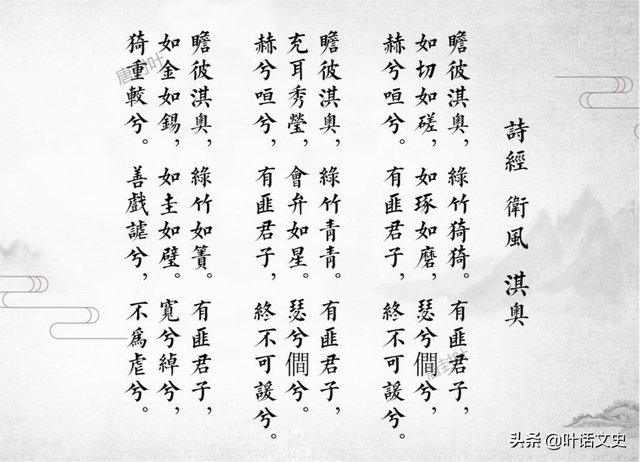 詩經 衛風 淇奧
瞻彼淇奧，綠竹猗猗。有匪君子，
如切如磋，如琢如磨，瑟兮僩兮，
赫兮咺兮。有匪君子，終不可諼兮。
瞻彼淇奧，綠竹青青。有匪君子，
充耳秀瑩，會弁如星。瑟兮僩兮。
赫兮咺兮，有匪君子，終不可諼兮。
瞻彼淇奧，綠竹如簀。有匪君子，
如金如錫，如圭如璧。寬兮綽兮，
猗重較兮。善戲謔兮，不爲虐兮。
头条 @叶话文史